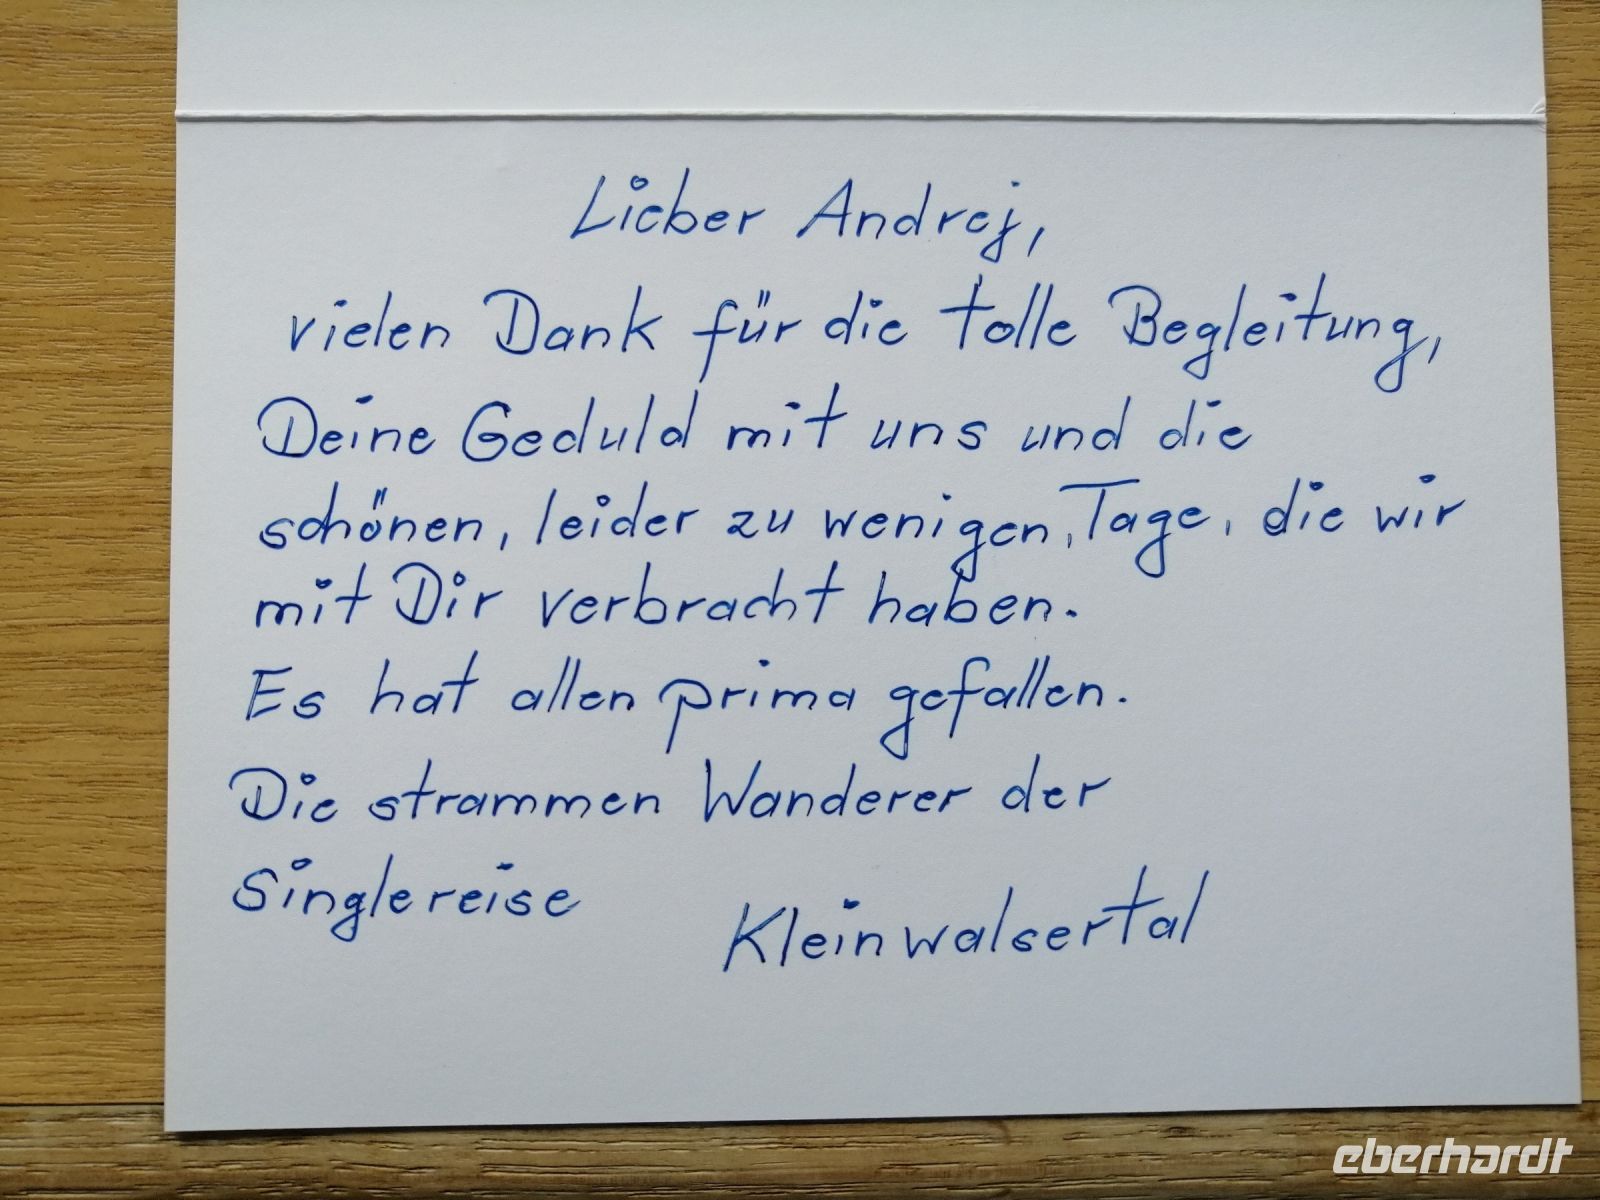 Lieber Andrej,
vielen Dank für die tolle Begleitung,
Deine Geduld mit uns und die
schönen, leider zu wenigen, Tage, die wir
mit Dir verbracht haben.
Es hat allen prima gefallen.
Die strammen Wanderer der
Singlereise
Kleinwalsertal
eberhardt